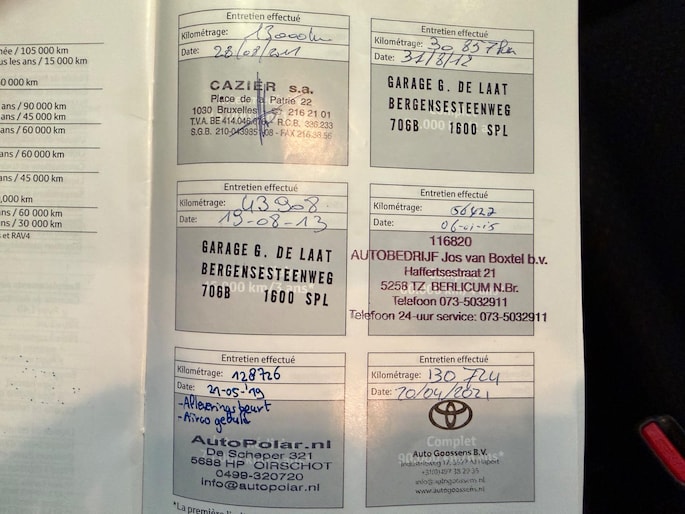 née / 105 000 km
us les ans / 15 000 km
0 000 km
ans / 90 000 km
ans / 45 000 km
ans / 60 000 km
ans / 60 000 km
ans / 45 000 km
,000 km
ans / 60 000 km
ans / 30 000 km
s et RAV4
Entretien effectué
Kilométrage: 13000km
Date: 23/08/2011
CAZIER s.a.
Place de la Patrie 22
1030 Bruxelles 216 21 01
T.V.A. BE 414.046. R.C.B. 339.233
S.G.B. 210-0439851-08 - FAX 216.38.56
Entretien effectué
Kilométrage: 30 857km
Date: 31/8/12
GARAGE G. DE LAAT
BERGENSESTEENWEG
706B 1600 SPL
Entretien effectué
Kilométrage: 43908
Date: 19-08-13
GARAGE G. DE LAAT
BERGENSESTEENWEG
706B 1600 SPL
Entretien effectué
Kilométrage: 56427
Date: 06-01-15
116820
AUTOBEDRIJF Jos van Boxtel b.v.
Haffertsestraat 21
5258 TZ BERLICUM N.Br.
Telefoon 073-5032911
Telefoon 24-uur service: 073-5032911
Entretien effectué
Kilométrage: 128726
Date: 21-05-'19
- Afleveringsbeurt
- Airco gevuld
AutoPolar.nl
De Scheper 321
5688 HP OIRSCHOT
0499-320720
info@autopolar.nl
Entretien effectué
Kilométrage: 130 724
Date: 20/04/2021
Complet
Auto Goossens B.V.
info@autogoossens.nl
www.autogoossens.nl
*La première